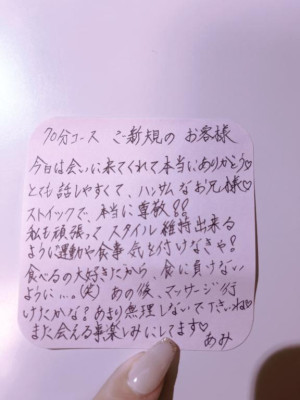 70分コース ご新規の お客様
今日は会いに来てくれて本当にありがとう♡
とても話しやすくて、ハンサムなお兄様♡
ストイックで、本当に尊敬!!
私も頑張って スタイル維持出来る
ように運動や食事 気を付けなきゃ!
食べるの大好きだから、食に負けない
ように...。(笑) あの後、マッサージ行
けたかな?あまり無理しないで下さいね♡
また会える事楽しみにしてます♡
あみ